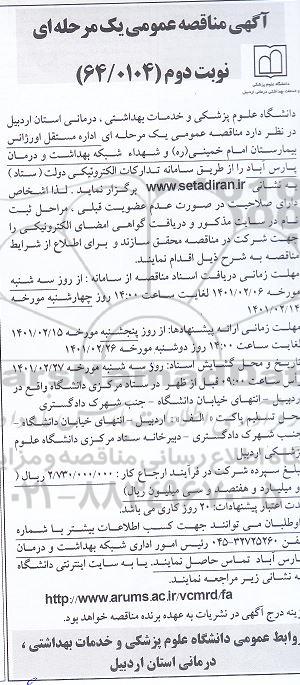 آگهی مناقصه عمومی یک مرحله ای
نوبت دوم (۶۴/۰۱۰۴)
دانشگاه علوم پزشکی و خدمات بهداشتی ، درمانی استان اردبیل
در نظر دارد مناقصه عمومی یک مرحله ای اداره مستقل اورژانس
بیمارستان امام خمینی(ره) و شهداء شبکه بهداشت و درمان
پارس آباد را از طریق سامانه تدارکات الکترونیکی دولت ( ستاد )
نشانی www.setadiran.ir برگزار نماید . لذا اشخاص
دارای صلاحیت در صورت عدم عضویت قبلی ، مراحل ثبت
نام در سایت مذکور و دریافت گواهی امضای الکترونیکی را
جهت شرکت در مناقصه محقق سازند و برای اطلاع از شرایط
مناقصه به شرح ذیل اقدام نمایند.
مهلت زمانی دریافت اسناد مناقصه از سامانه : از روز سه شنبه
مورخه ۱۴۰۱/۰۲/۰۶ لغایت ساعت ۱۴:۰۰ روز چهارشنبه مورخه
۱۴۰۱/۰۲/۱۴
مهلت زمانی ارائه پیشنهادها: از روز پنجشنبه مورخه ۱۴۰۱/۰۲/۱۵
لغایت ساعت ۱۴:۰۰ روز دوشنبه مورخه ۱۴۰۱/۰۲/۲۶
تاریخ و محل گشایش اسناد: روز سه شنبه مورخه ۱۴۰۱/۰۲/۲۷
ساعت ۰۹:۰۰ قبل از ظهر در ستاد مرکزی دانشگاه واقع در
اردبیل – انتهای خیابان دانشگاه – جنب شهرک دادگستری
محل تسلیم پاکت « الف » : اردبیل – انتهای خیابان دانشگاه –
جنب شهرک دادگستری – دبیرخانه ستاد مرکزی دانشگاه علوم
پزشکی اردبیل
مبلغ سپرده شرکت در فرآیند ارجاع کار : ۲/۷۳۰/۰۰۰/۰۰۰ ریال (
دو میلیارد و هفتصد و سی میلیون ریال)
مدت اعتبار پیشنهادات: ۲۰ روز کاری می باشد.
داوطلبان می توانند جهت کسب اطلاعات بیشتر با شماره
تلفن ۳۲۷۲۵۲۶۰-۰۴۵ رئیس امور اداری شبکه بهداشت و درمان
پارس آباد تماس حاصل نمایند. یا به سایت اینترنتی دانشگاه
به نشانی زیر مراجعه نمایند.
http://www.arums.ac.ir/vcmrd/fa
هزینه درج آگهی در نشریات به عهده برنده مناقصه خواهد بود.
روابط عمومی دانشگاه علوم پزشکی و خدمات بهداشتی ،
درمانی استان اردبیل